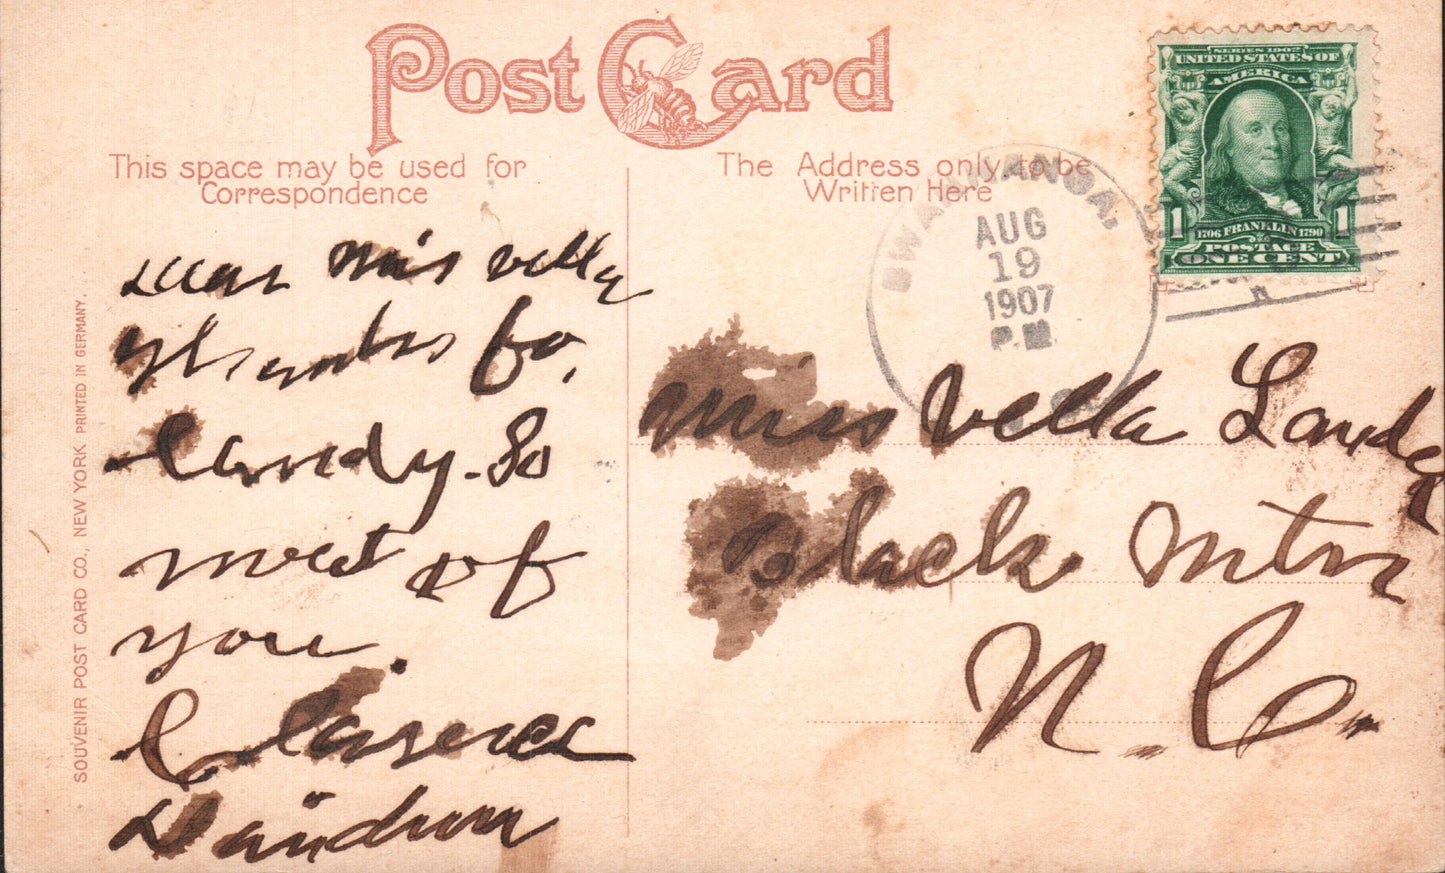 Post Card
This space may be used for
Correspondence
The Address only to be
Written Here
SERIES 1902
UNITED STATES OF
AMERICA
1 1
1706 FRANKLIN 1790
POSTAGE
ONE CENT
SWANNANOA,
AUG
19
1907
P.M.
Dear Mis vella
thanks fo,
Candy. So
meet of
you.
Clarence
Davidson
Miss Vella Lander
Black Mtn
N. C.
SOUVENIR POST CARD CO., NEW YORK PRINTED IN GERMANY.